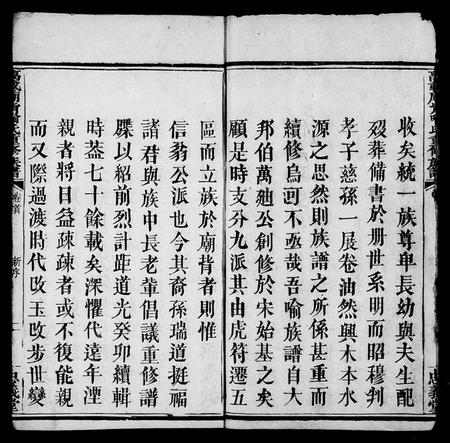 收矣統一族尊卑長幼與夫生配
殁葬備書於册世系明而昭穆判
孝子慈孫一展卷油然興木本水
源之思然則族譜之所係甚重而
續修烏可不亟哉吾喻族譜自大
邦伯萬廸公創修於宋始基之矣
顧是時支分九派其由虎符遷五
區而立族於廟背者則惟
信翁公派也今其裔孫瑞道挺福
諸君與族中長老輩倡議重修譜
牒以紹前烈計距道光癸卯續輯
時葢七十餘載矣深懼代遠年湮
親者將日益疎疎者或不復能親
而又際過渡時代改玉改步世變
卷首
新序
忠義堂